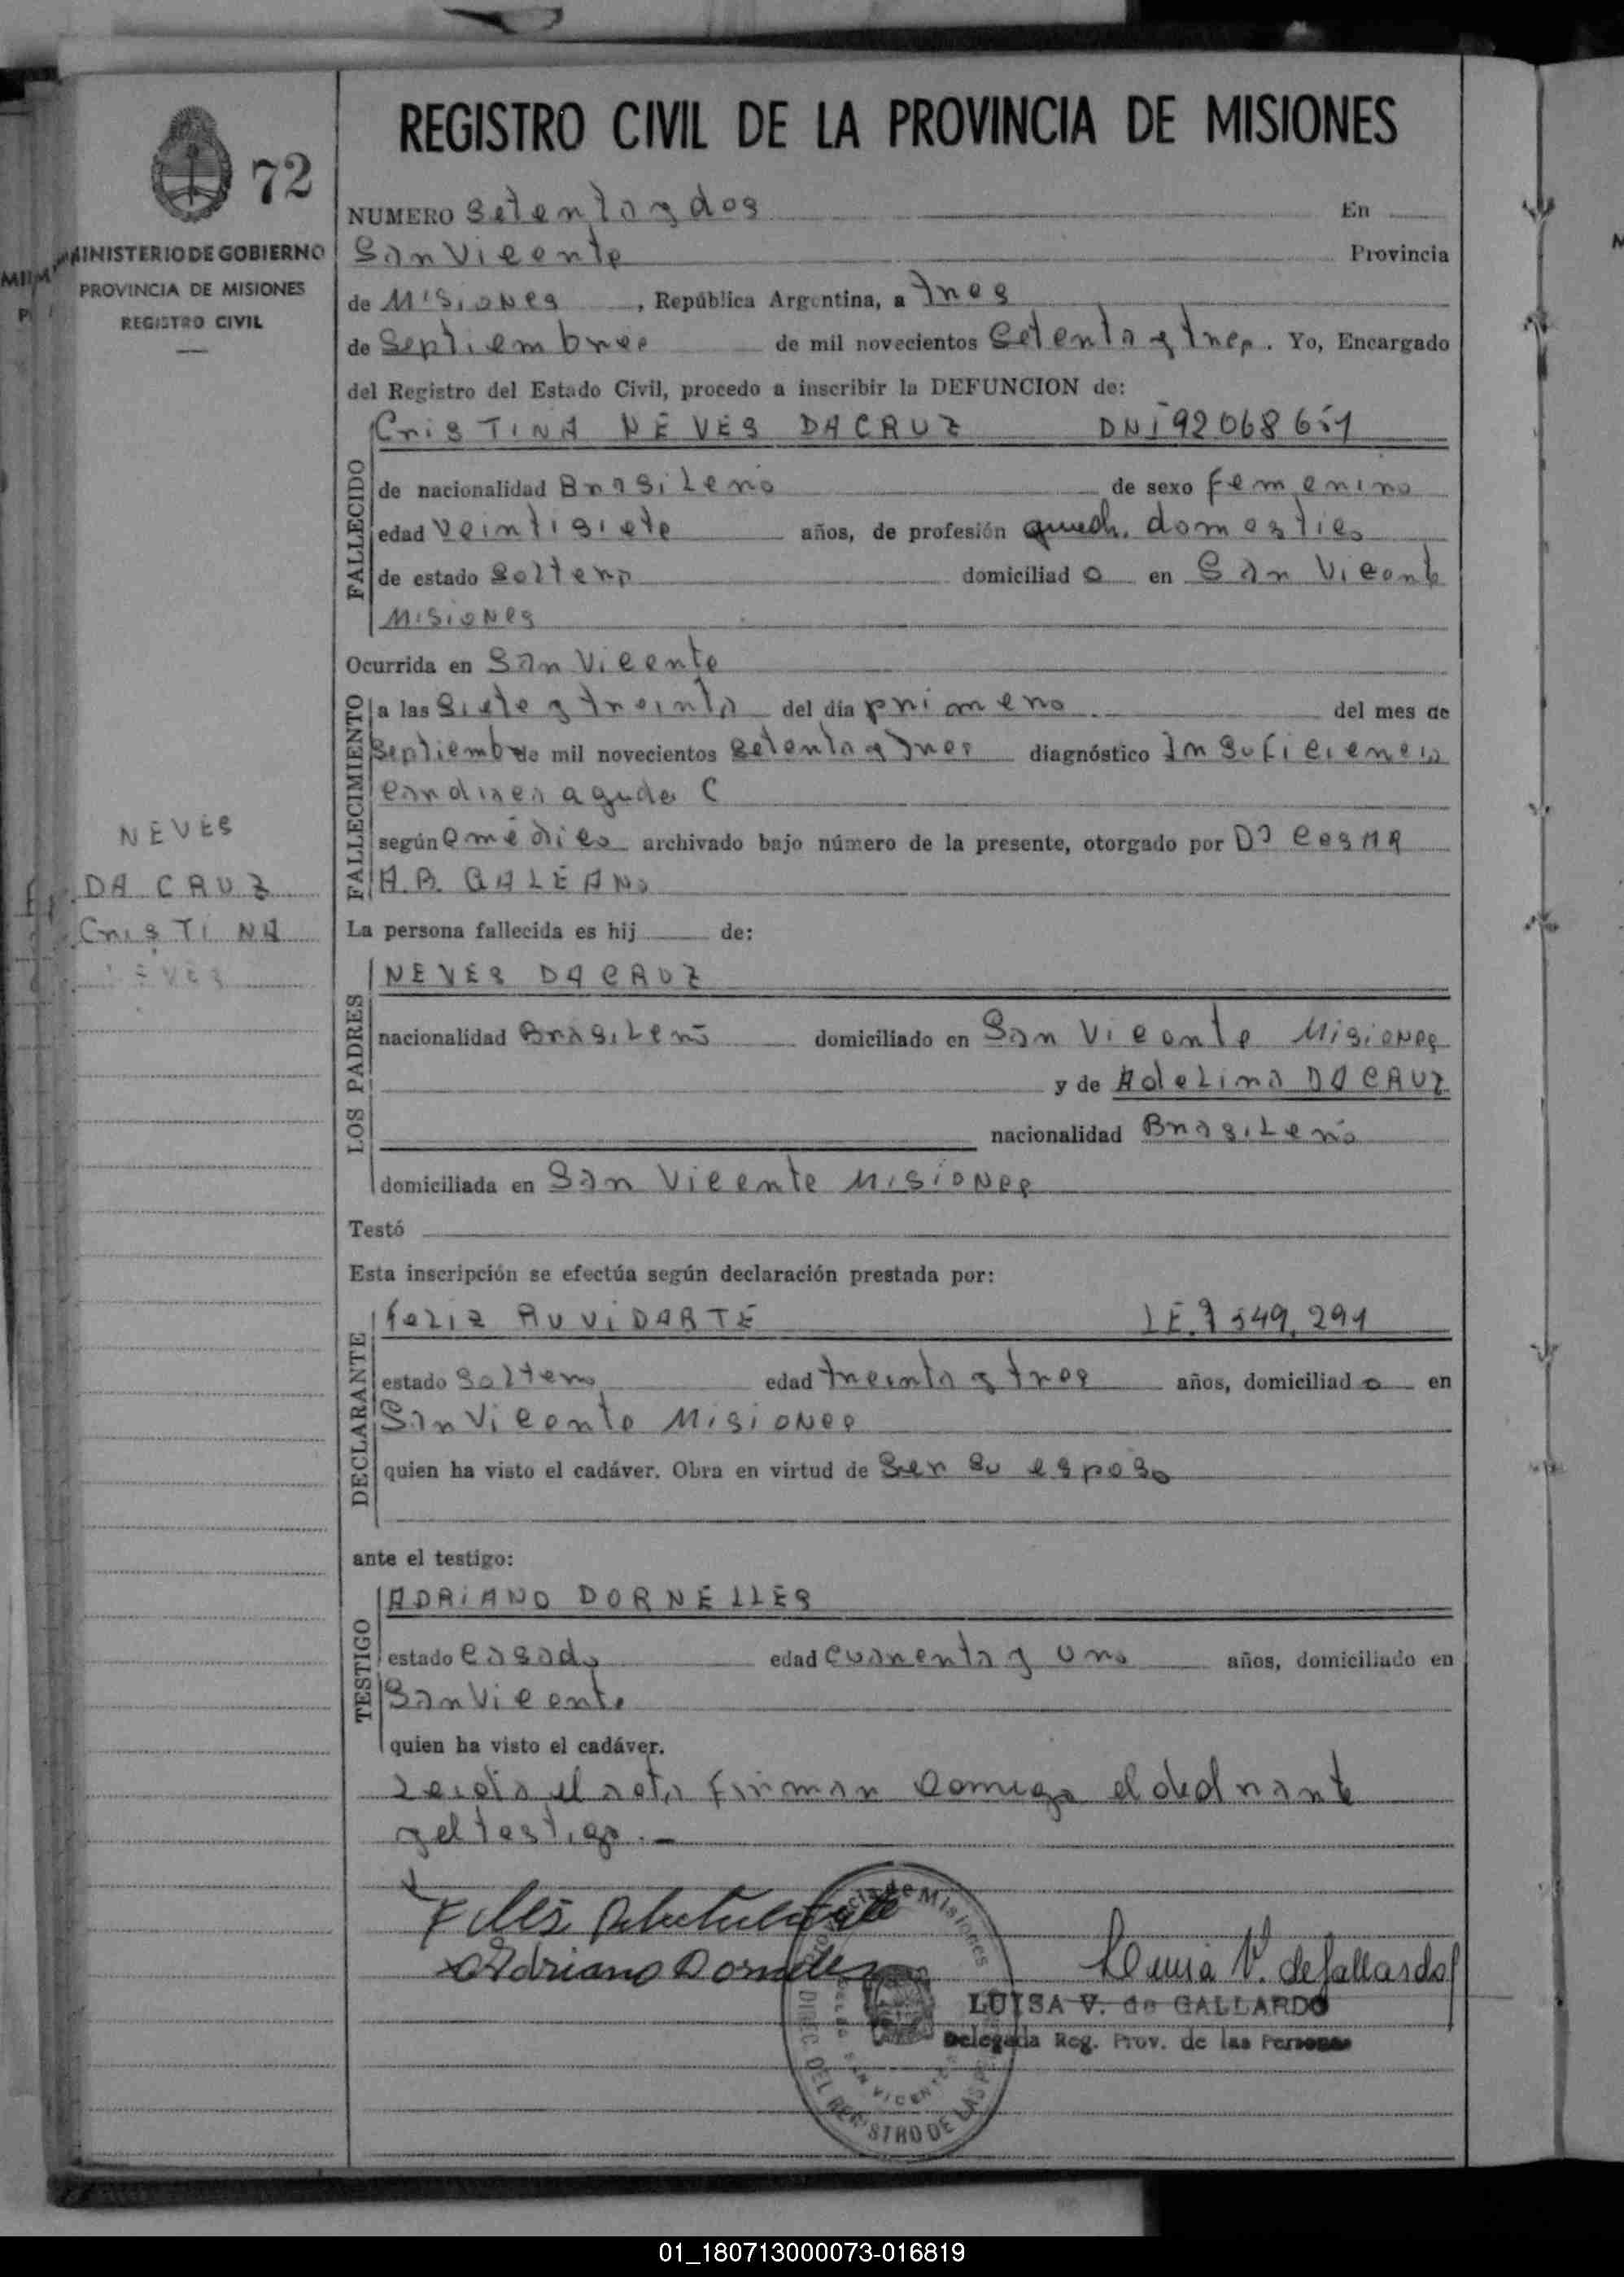 REGISTRO CIVIL DE LA PROVINCIA DE MISIONES
72
MINISTERIO DE GOBIERNO
PROVINCIA DE MISIONES
REGISTRO CIVIL
NUMERO Setenta y dos En
San Vicente Provincia
de Misiones, República Argentina, a tres
de Septiembre de mil novecientos Setenta y tres. Yo, Encargado
del Registro del Estado Civil, procedo a inscribir la DEFUNCION de:
CrisTINA NEVES DACRUZ DNI 92068651
FALLECIDO
de nacionalidad Brasileña de sexo femenino
edad veintisiete años, de profesión domestica
de estado Soltera domiciliado en San Vicente
Misiones
Ocurrida en San Vicente
FALLECIMIENTO
a las Siete y treinta del día primero del mes de
Septiembre de mil novecientos Setenta y tres diagnóstico Insuficiencia
cardiaca aguda C
según C médico archivado bajo número de la presente, otorgado por Dr CesAR
A.B. GALEANO
NEVES
DA CRUZ
CrisTINA
La persona fallecida es hij de:
LOS PADRES
NEVES DA CRUZ
nacionalidad Brasileño domiciliado en San Vicente Misiones
y de Adelina DA CRUZ
nacionalidad Brasileña
domiciliada en San Vicente Misiones
Testó
Esta inscripción se efectúa según declaración prestada por:
DECLARANTE
feliz RUVIDARTE LE. 7549.291
estado Soltero edad treinta y tres años, domiciliado en
San Vicente Misiones
quien ha visto el cadáver. Obra en virtud de Ser Su esposo
ante el testigo:
TESTIGO
ADRIANO DORNELLES
estado casado edad cuarenta y uno años, domiciliado en
San Vicente
quien ha visto el cadáver.
Leida el acta firman comigo el declarante
y el testigo.—
Adriano Dornelles
Luisa V. de Gallardo
LUISA V. de GALLARDO
Delegada Reg. Prov. de las Personas
Provincia de Misiones
SAN VICENTE
DIREC. DEL REGISTRO DE LAS
01_180713000073-016819